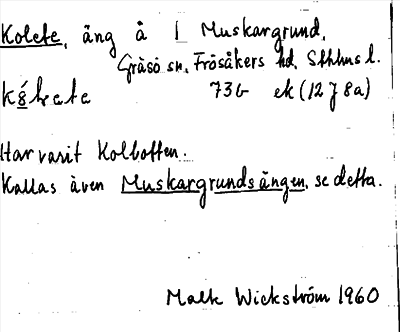 Kolete, äng å 1 Muskargrund,
Gräsö sn, Frösåkers hd, Sthlms l.
73b ek (12 J 8a)
Har varit Kolbotten.
Kallas även Muskargrundsängen, se detta.
Malk Wickström 1960